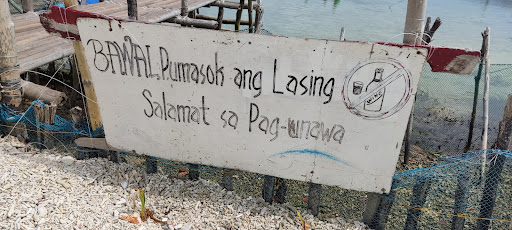 BAWAL Pumasok ang Lasing
Salamat sa Pag-unawa